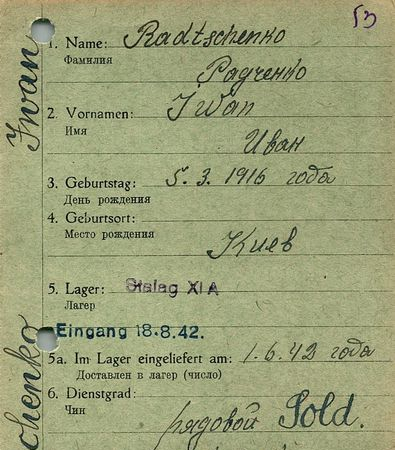 53
1. Name: Radtschenko
Фамилия
Радченко
2. Vornamen: Iwan
Имя
Иван
3. Geburtstag: 5. 3. 1916 года
День рождения
4. Geburtsort:
Место рождения
Киев
5. Lager: Stalag XI A
Лагер
Eingang 18.8.42.
5a. Im Lager eingeliefert am: 1.6.42 года
Доставлен в лагер (число)
6. Dienstgrad:
Чин
рядовой Sold.
Iwan
chenko